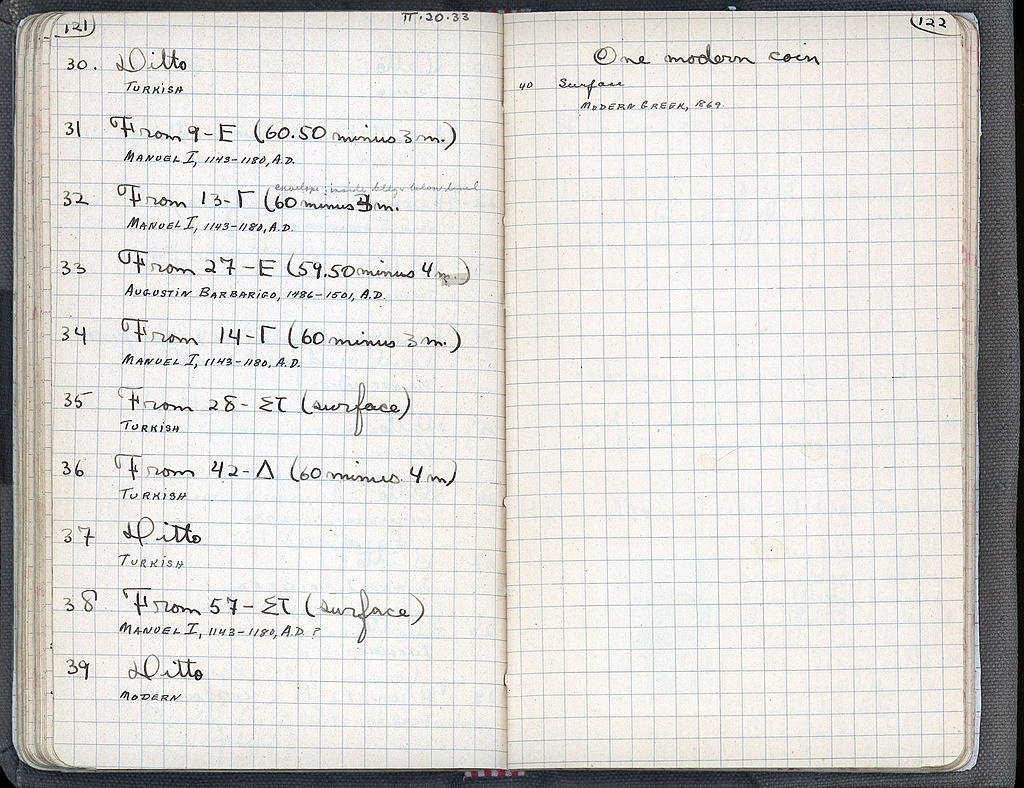 121
II.20.33
30. Ditto
TURKISH
31 From 9-E (60.50 minus 3 m.)
MANUEL I, 1143-1180, A.D.
envelope: inside bldg. below level
32 From 13-Γ (60 minus 3 m.
MANUEL I, 1143-1180, A.D.
33 From 27-E (59.50 minus 4 m.)
AUGUSTIN BARBARIGO, 1486-1501, A.D.
34 From 14-Γ (60 minus 3 m.)
MANUEL I, 1143-1180, A.D.
35 From 28-ΣΤ (surface)
TURKISH
36 From 42-Δ (60 minus 4 m)
TURKISH
37 Ditto
TURKISH
38 From 57-ΣΤ (surface)
MANUEL I, 1143-1180, A.D. ?
39 Ditto
MODERN
122
One modern coin
40 Surface
MODERN GREEK, 1869.